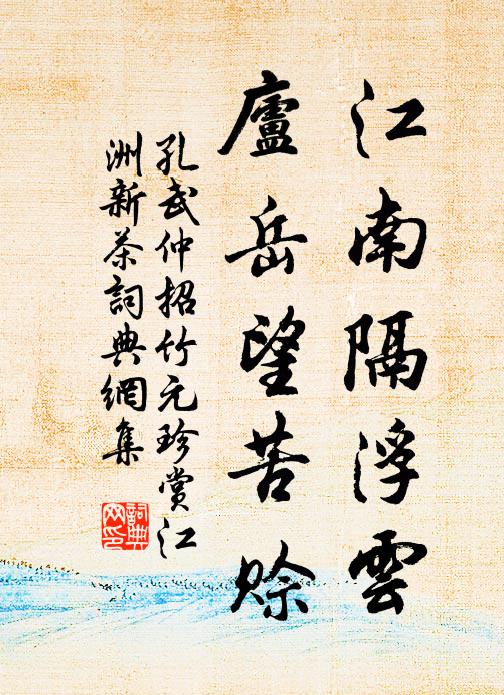 江南隔浮雲
廬岳望苦賒
孔武仲招竹元珍賞江
洲新茶詞典網集
詞典網印